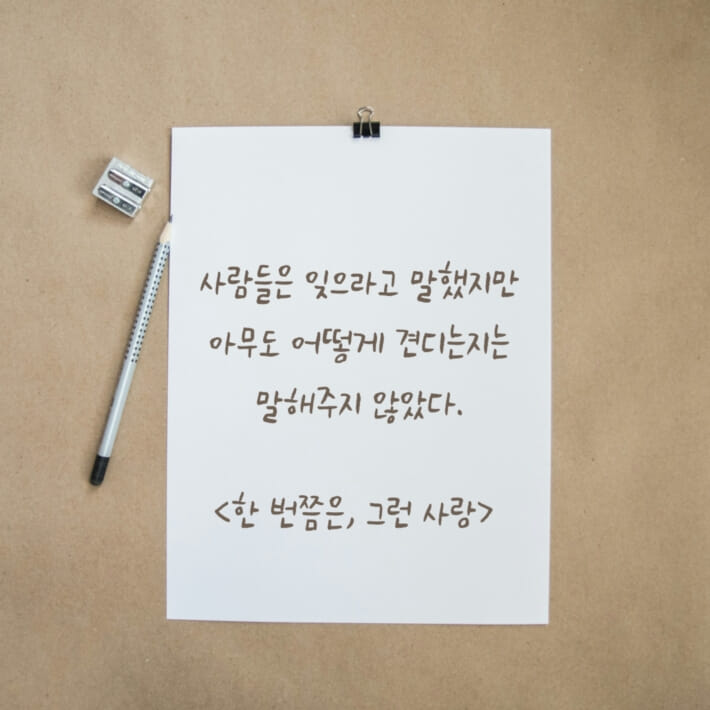 사람들은 잊으라고 말했지만
아무도 어떻게 견디는지는
말해주지 않았다.
<한 번쯤은, 그런 사랑>